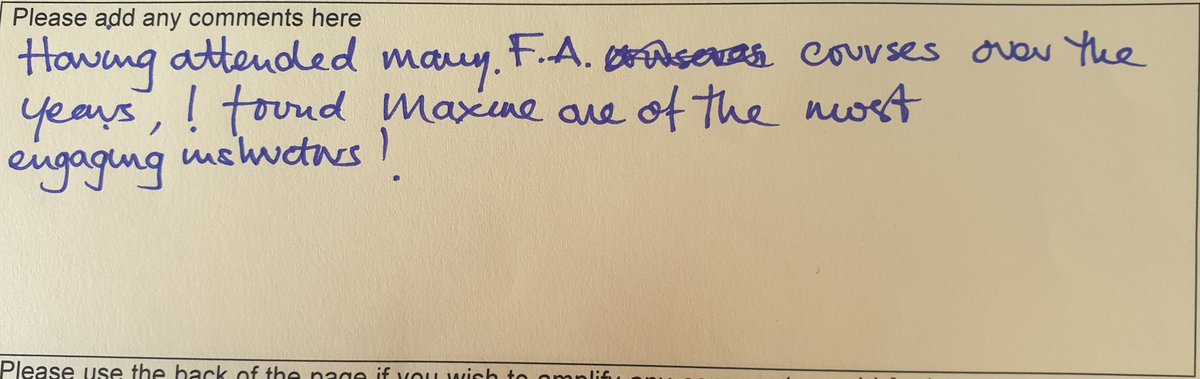 Please add any comments here
Having attended many F.A. courses over the
years, I found Maxine one of the most
engaging instructors!
Please use the back of the page if you wish to amplify any